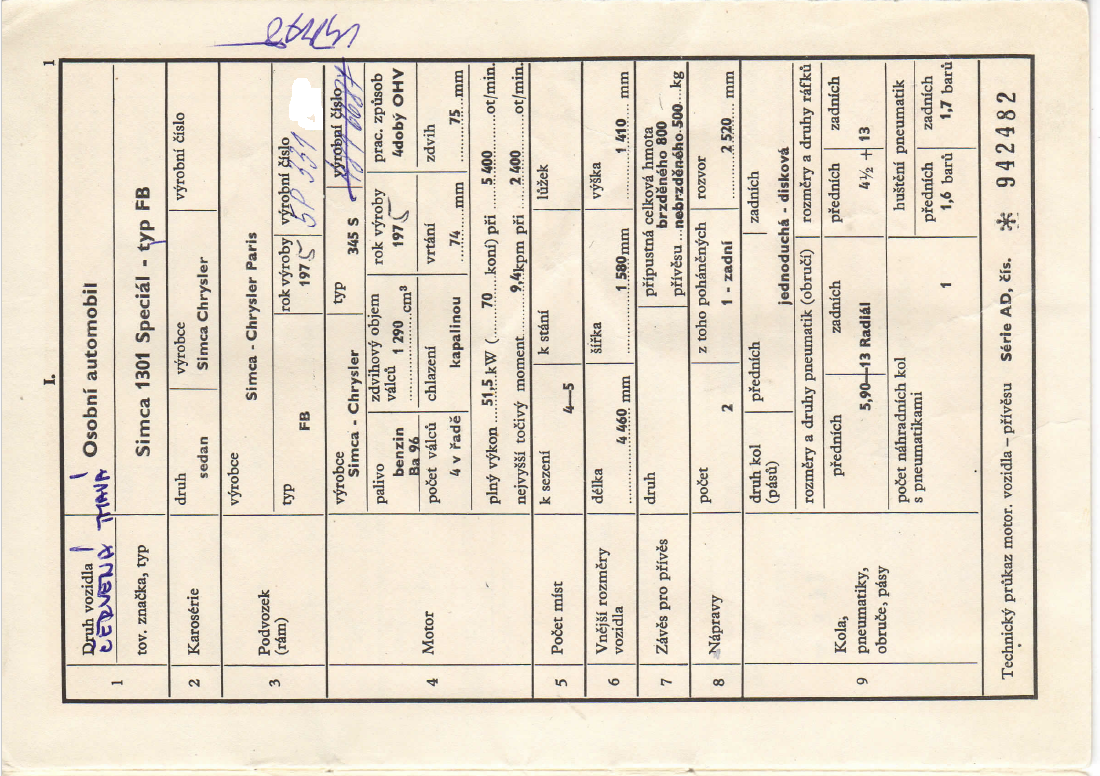 I.
1
1
Druh vozidla
Osobní automobil
ČERVENÁ TMAVÁ
tov. značka, typ
Simca 1301 Speciál - typ FB
2
Karosérie
druh
sedan
výrobce
Simca Chrysler
výrobní číslo
3
Podvozek
(rám)
výrobce
Simca - Chrysler Paris
typ
FB
rok výroby
1975
výrobní číslo
5P 331
4
Motor
výrobce
Simca - Chrysler
typ
345 S
výrobní číslo
palivo
benzin
Ba 96
zdvihový objem
válců 1 290 cm3
rok výroby
1975
prac. způsob
4dobý OHV
počet válců
4 v řadě
chlazení
kapalinou
vrtání
74 mm
zdvih
75 mm
plný výkon 51,5 kW ( 70 koní) při 5 400 ot/min.
nejvyšší točivý moment 9,4kpm při 2 400 ot/min.
5
Počet míst
k sezení
4—5
k stání
lůžek
6
Vnější rozměry
vozidla
délka
4 460 mm
šířka
1 580 mm
výška
1 410 mm
7
Závěs pro přívěs
druh
přípustná celková hmota
brzděného 800
přívěsu nebrzděného 500 kg
8
Nápravy
počet
2
z toho poháněných
1 - zadní
rozvor
2 520 mm
9
Kola,
pneumatiky,
obruče, pásy
druh kol
(pásů)
předních
zadních
jednoduchá - disková
rozměry a druhy pneumatik (obručí)
rozměry a druhy ráfků
předních
zadních
5,90—13 Radiál
předních
zadních
4½ + 13
počet náhradních kol
s pneumatikami
1
huštění pneumatik
předních
1,6 barů
zadních
1,7 barů
Technický průkaz motor. vozidla – přívěsu Série AD, čís. * 942482